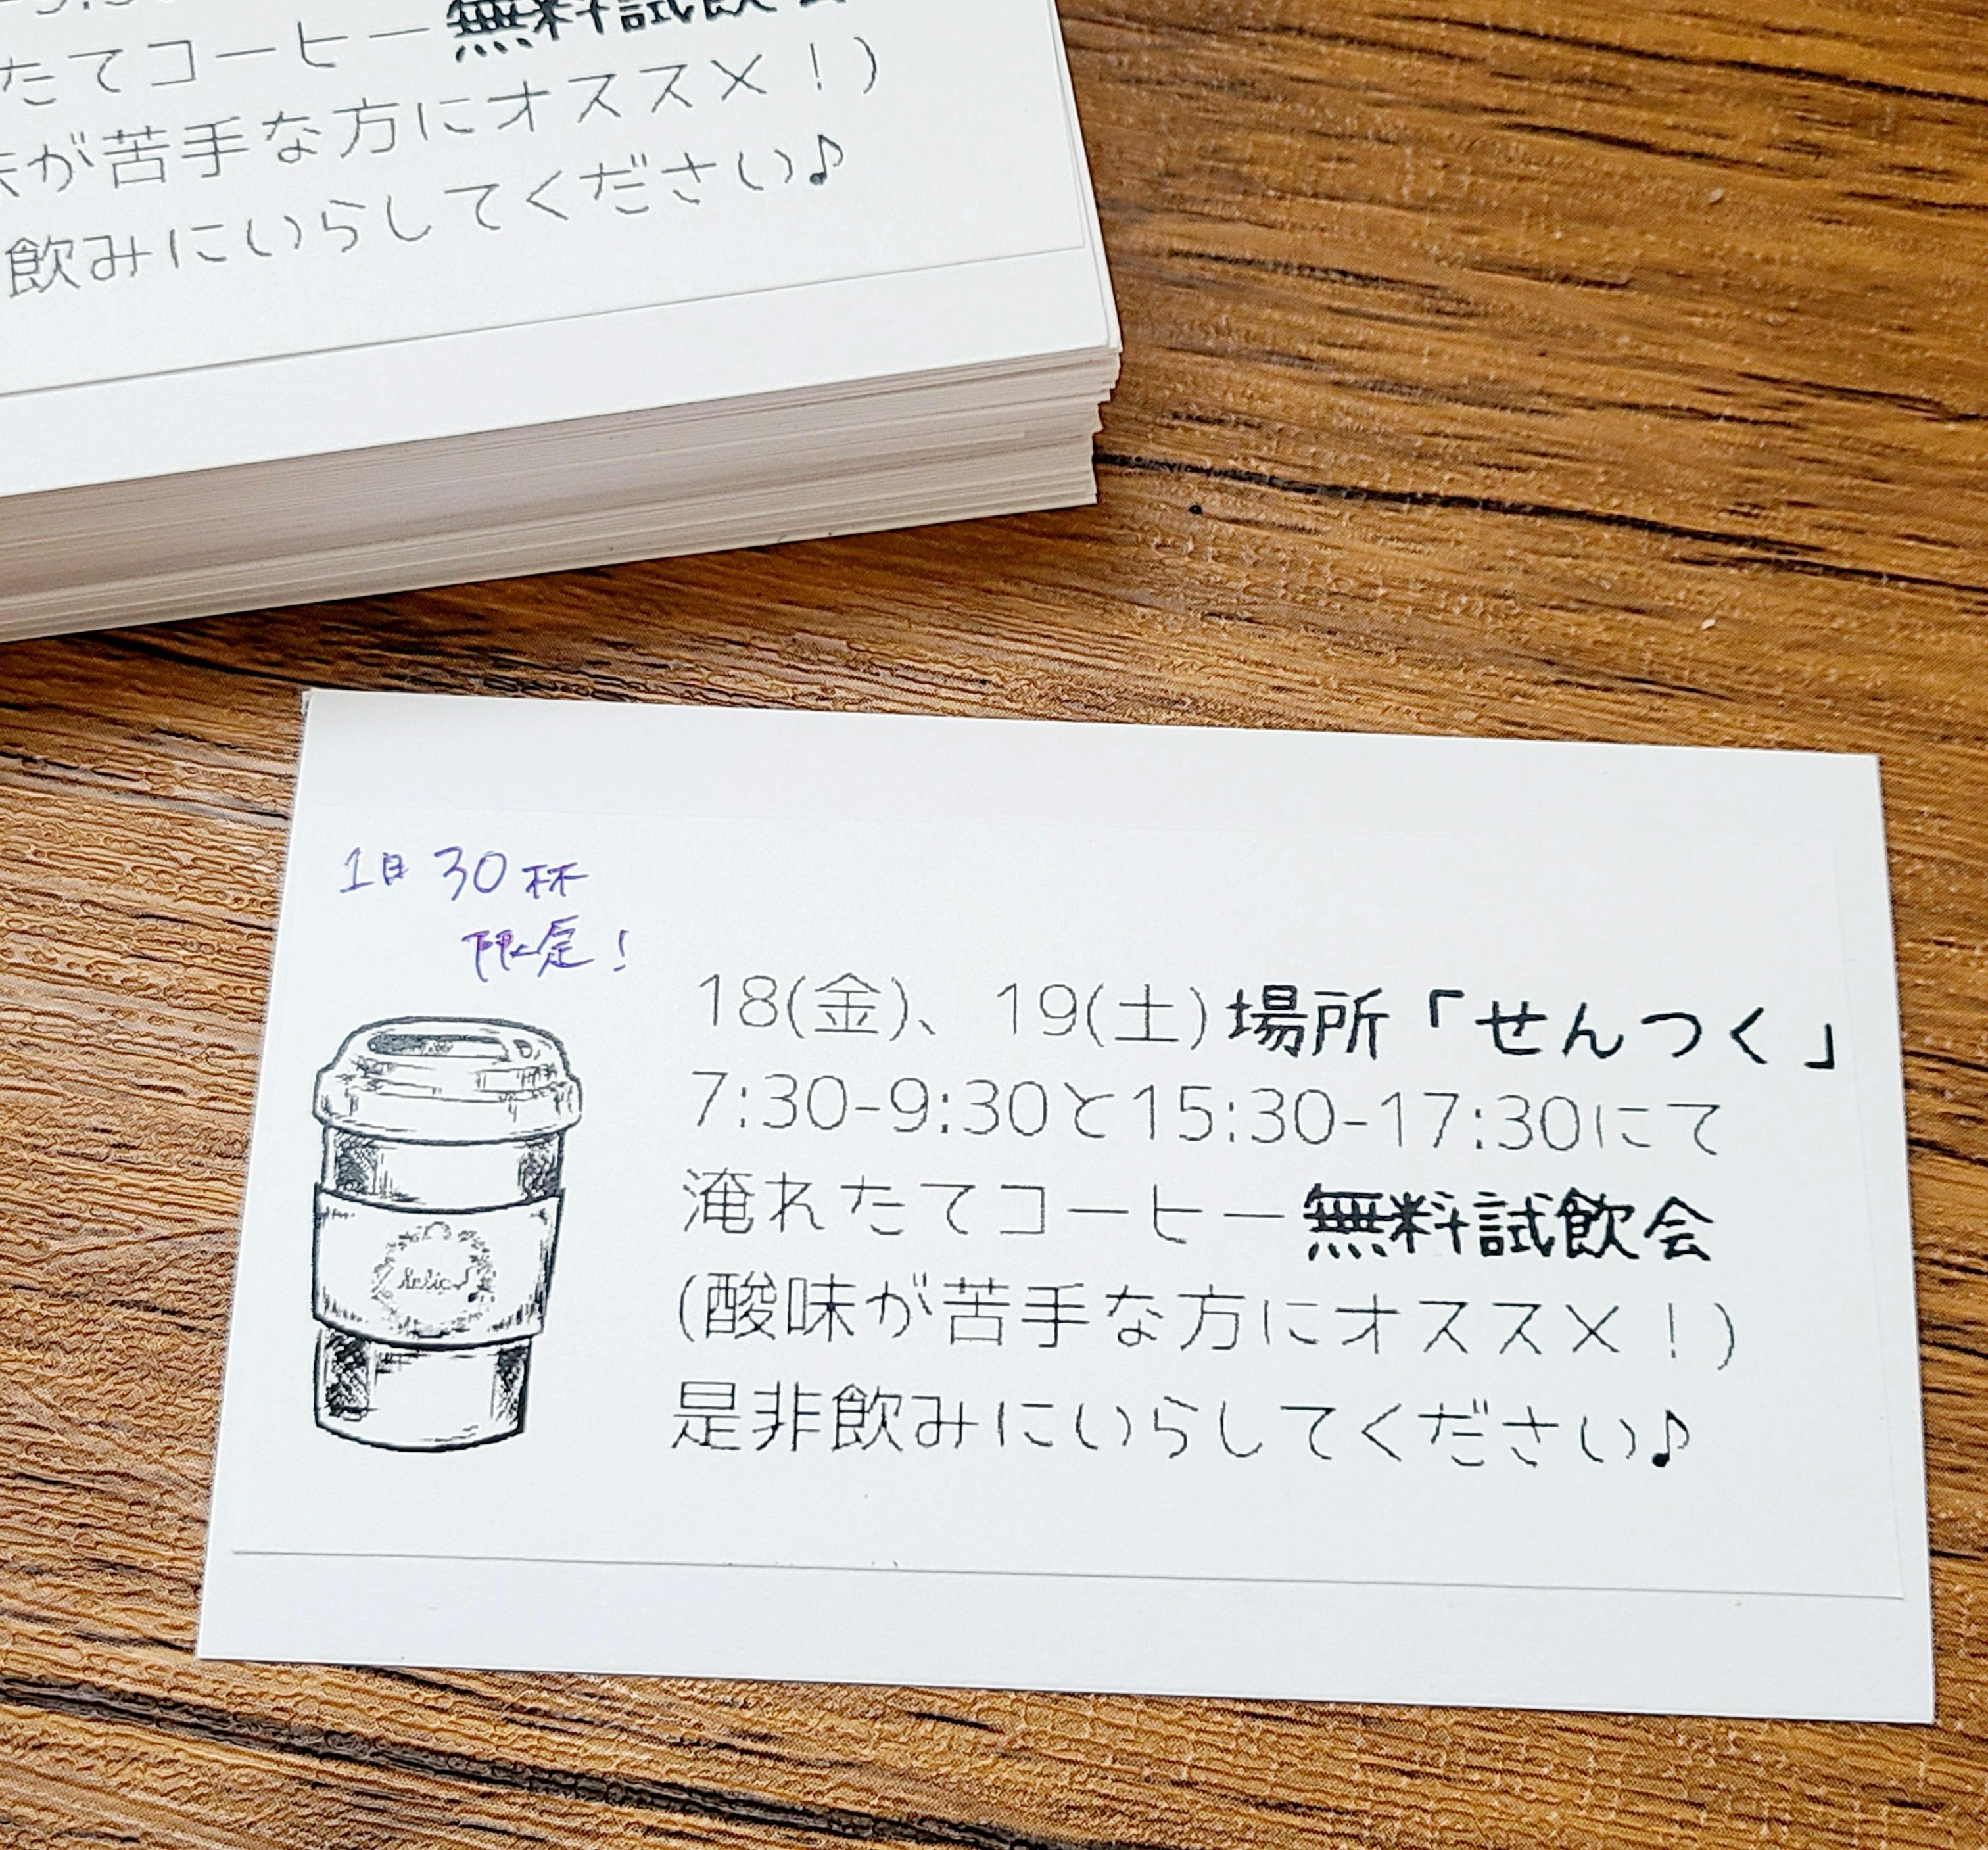 たてコーヒー無料試飲会
が苦手な方にオススメ！)
飲みにいらしてください♪
1日30杯
限定！
18(金)、19(土)場所「せんつく」
7:30-9:30と15:30-17:30にて
淹れたてコーヒー無料試飲会
(酸味が苦手な方にオススメ！)
是非飲みにいらしてください♪